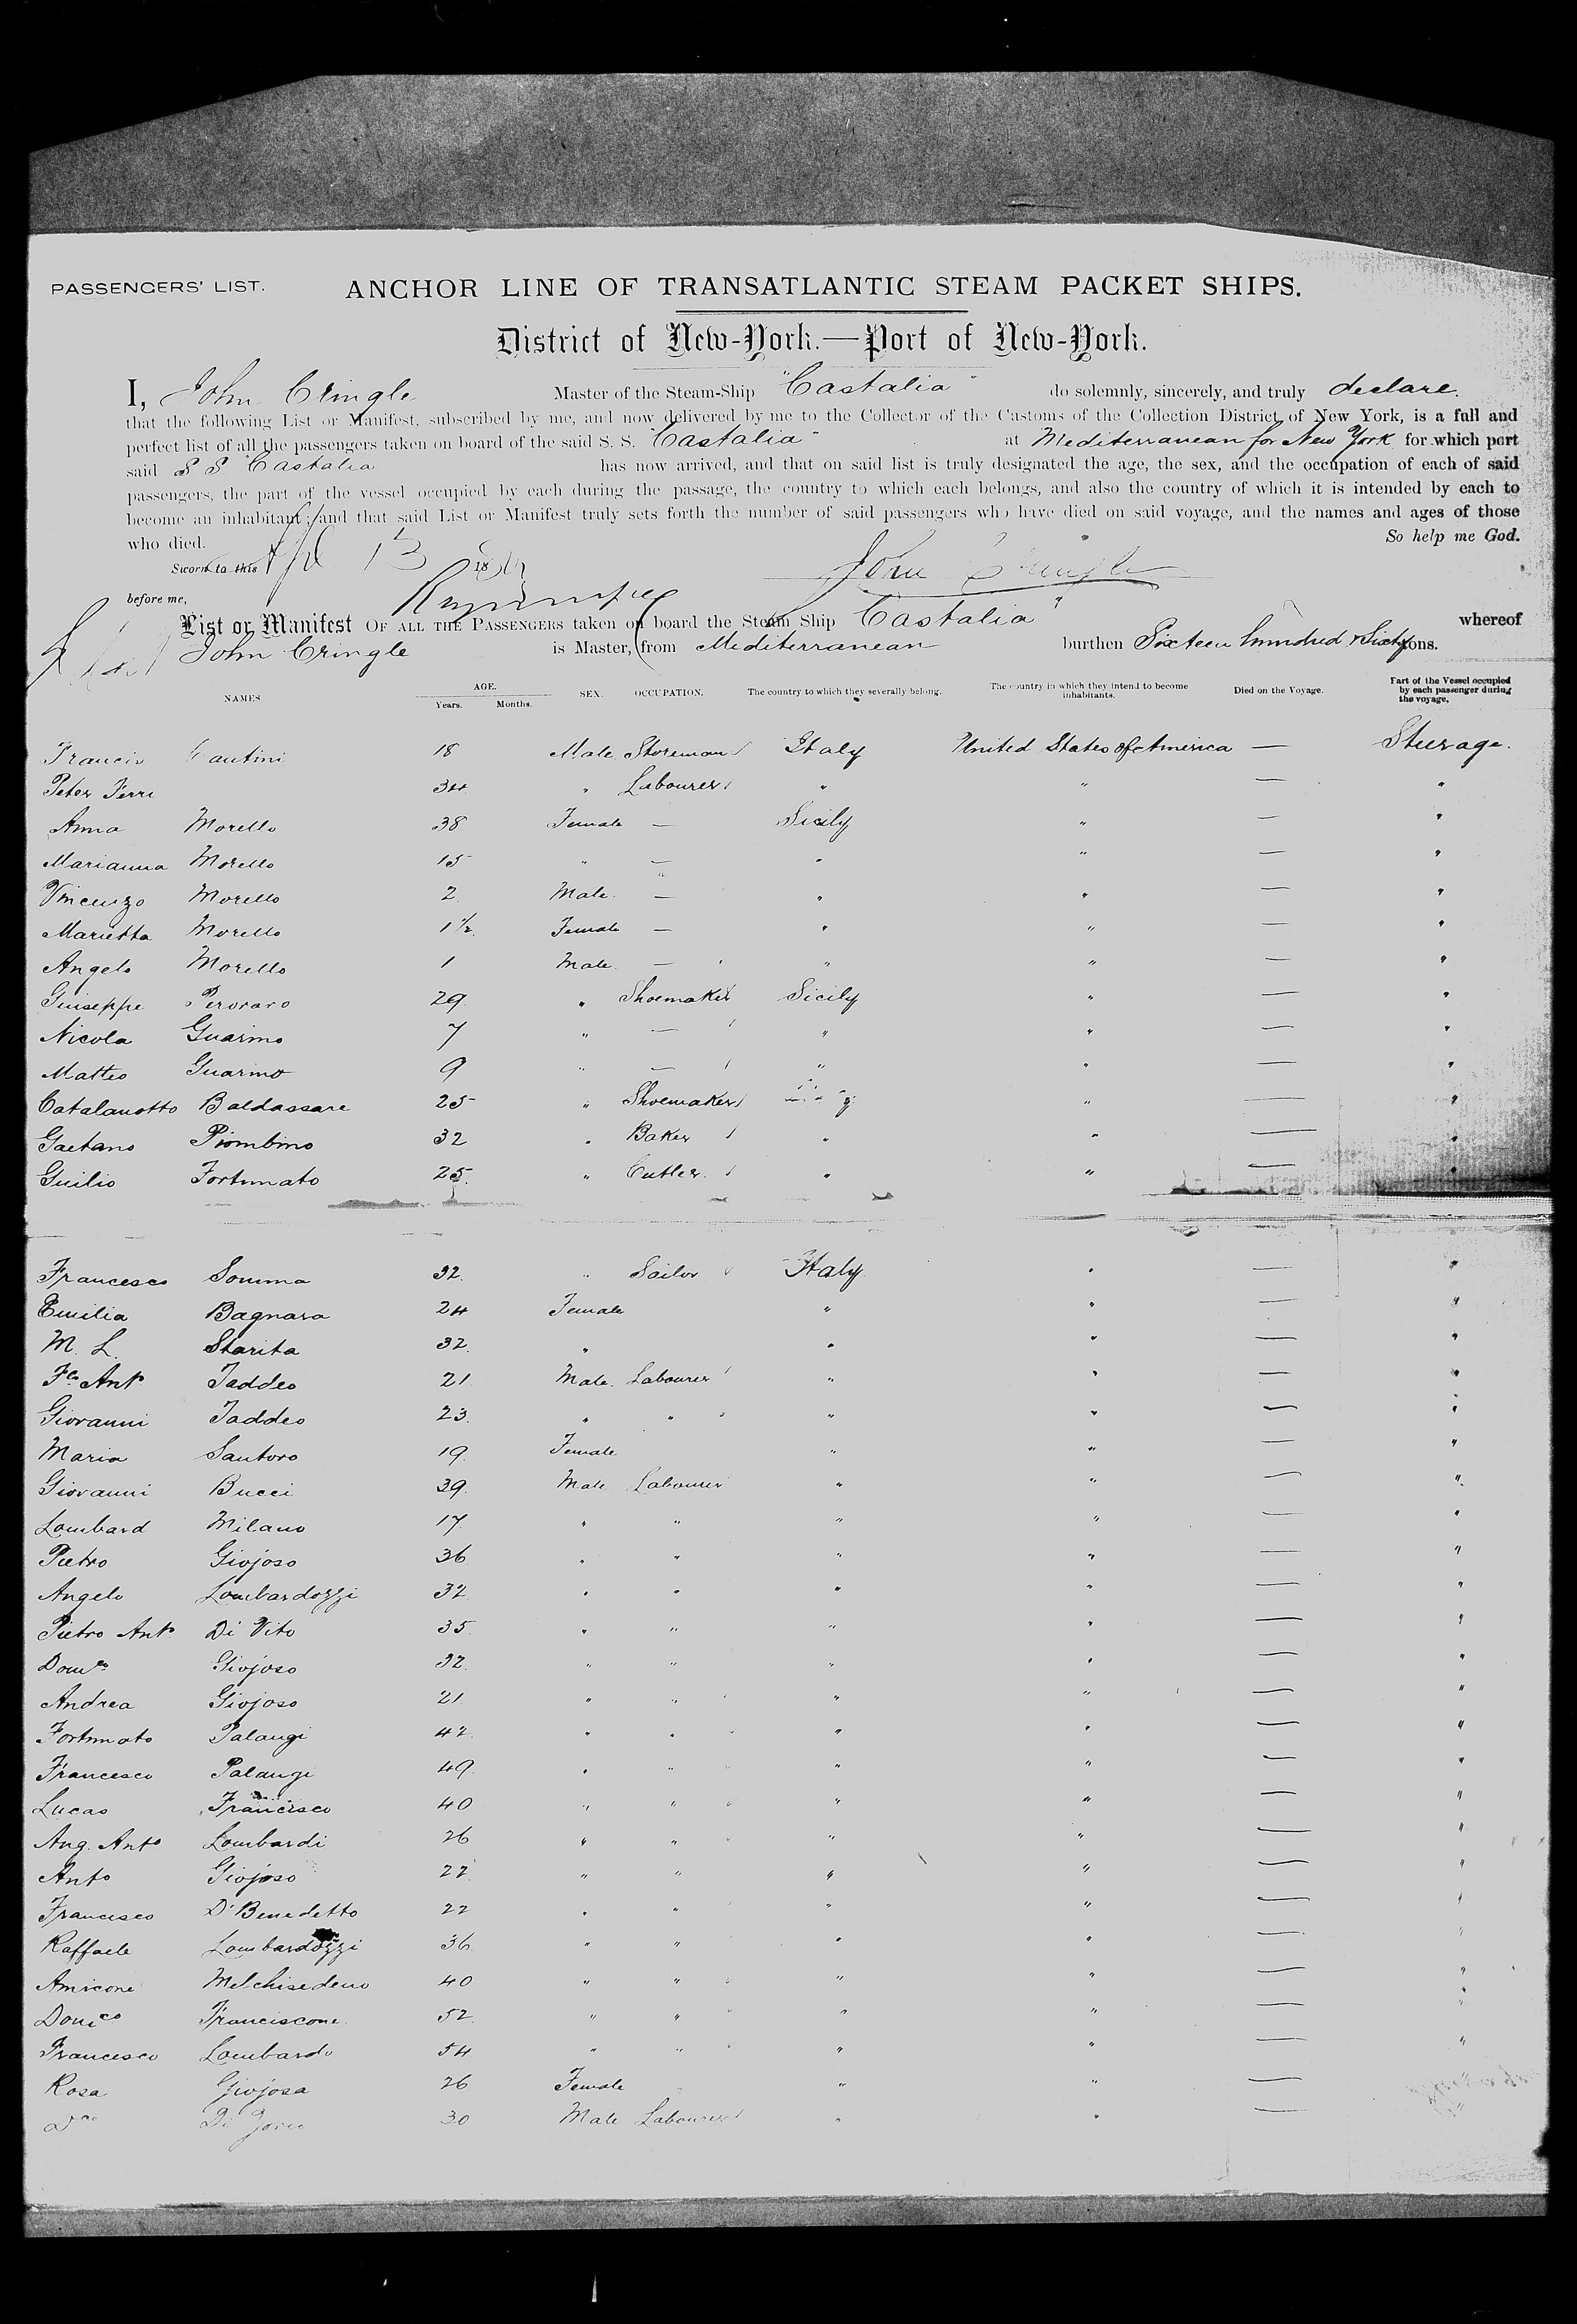 PASSENGERS' LIST. ANCHOR LINE OF TRANSATLANTIC STEAM PACKET SHIPS.
District of New-York.—Port of New-York.
I, John Cringle Master of the Steam-Ship "Castalia" do solemnly, sincerely, and truly declare.
that the following List or Manifest, subscribed by me, and now delivered by me to the Collector of the Customs of the Collection District of New York, is a full and
perfect list of all the passengers taken on board of the said S. S. "Castalia" at Mediterranean for New York for which port
said S S Castalia has now arrived, and that on said list is truly designated the age, the sex, and the occupation of each of said
passengers, the part of the vessel occupied by each during the passage, the country to which each belongs, and also the country of which it is intended by each to
become an inhabitant; and that said List or Manifest truly sets forth the number of said passengers who have died on said voyage, and the names and ages of those
who died. So help me God.
Sworn to this 13 18 John Cringle
before me,
List or Manifest OF ALL THE PASSENGERS taken on board the Steam Ship Castalia" whereof
John Cringle is Master, from Mediterranean burthen Sixteen hundred & Sixty tons.
NAMES AGE. Years. Months. SEX. OCCUPATION. The country to which they severally belong. The country in which they intend to become inhabitants. Died on the Voyage. Part of the Vessel occupied by each passenger during the voyage.
Francis 18 Male Storeman Italy United States of America — Steerage.
Peter Ferri 34 " Labourer " " — "
Anna Morello 38 Female — Sicily " — "
Marianna Morello 15 " — " " — "
Vincenzo Morello 2 Male. — " " — "
Marietta Morello 1 1/2 Female — " " — "
Angelo Morello 1 Male. — " " — "
Giuseppe 29 " Shoemaker Sicily " — "
Nicola Guarino 7 " — " " — "
Matteo Guarino 9 " — " " — "
Catalanotto Baldassare 25 " Shoemaker " — "
Gaetano Piombino 32 " Baker " " — "
Guilio Fortunato 25. " Cutler. " " — "
Francesco Somma 32. " Sailor Italy " — "
Emilia Bagnara 24 Female " " — "
M. L. Starita 32. " " " — "
Fco Anto Taddeo 21 Male. Labourer " " — "
Giovanni Taddeo 23. " " " " — "
Maria Santoro 19. Female " " — "
Giovanni Bucci 39. Male Labourer " " — "
Lombard Milano 17. " " " " — "
Pietro Giojoso 36 " " " " — "
Angelo Lombardozzi 32. " " " " — "
Pietro Anto Di Vito 35. " " " " — "
Domco Giojoso 32. " " " " — "
Andrea Giojoso 21 " " " " — "
Fortunato Palangi 42. " " " " — "
Francesco Palangi 49. " " " " — "
Lucas Francisco 40 " " " " — "
Ang. Anto Lombardi 26 " " " " — "
Anto Giojoso 22. " " " " — "
Francesco D'Benedetto 22 " " " " — "
Raffaele Lombardozzi 36 " " " " — "
Amicone Melchisedeno 40 " " " " — "
Domco Franciscone 52. " " " " — "
Francesco Lombardo 54 " " " " — "
Rosa Giojosa 26 Female " " —
Dco Di 30 Male Labourer " " —